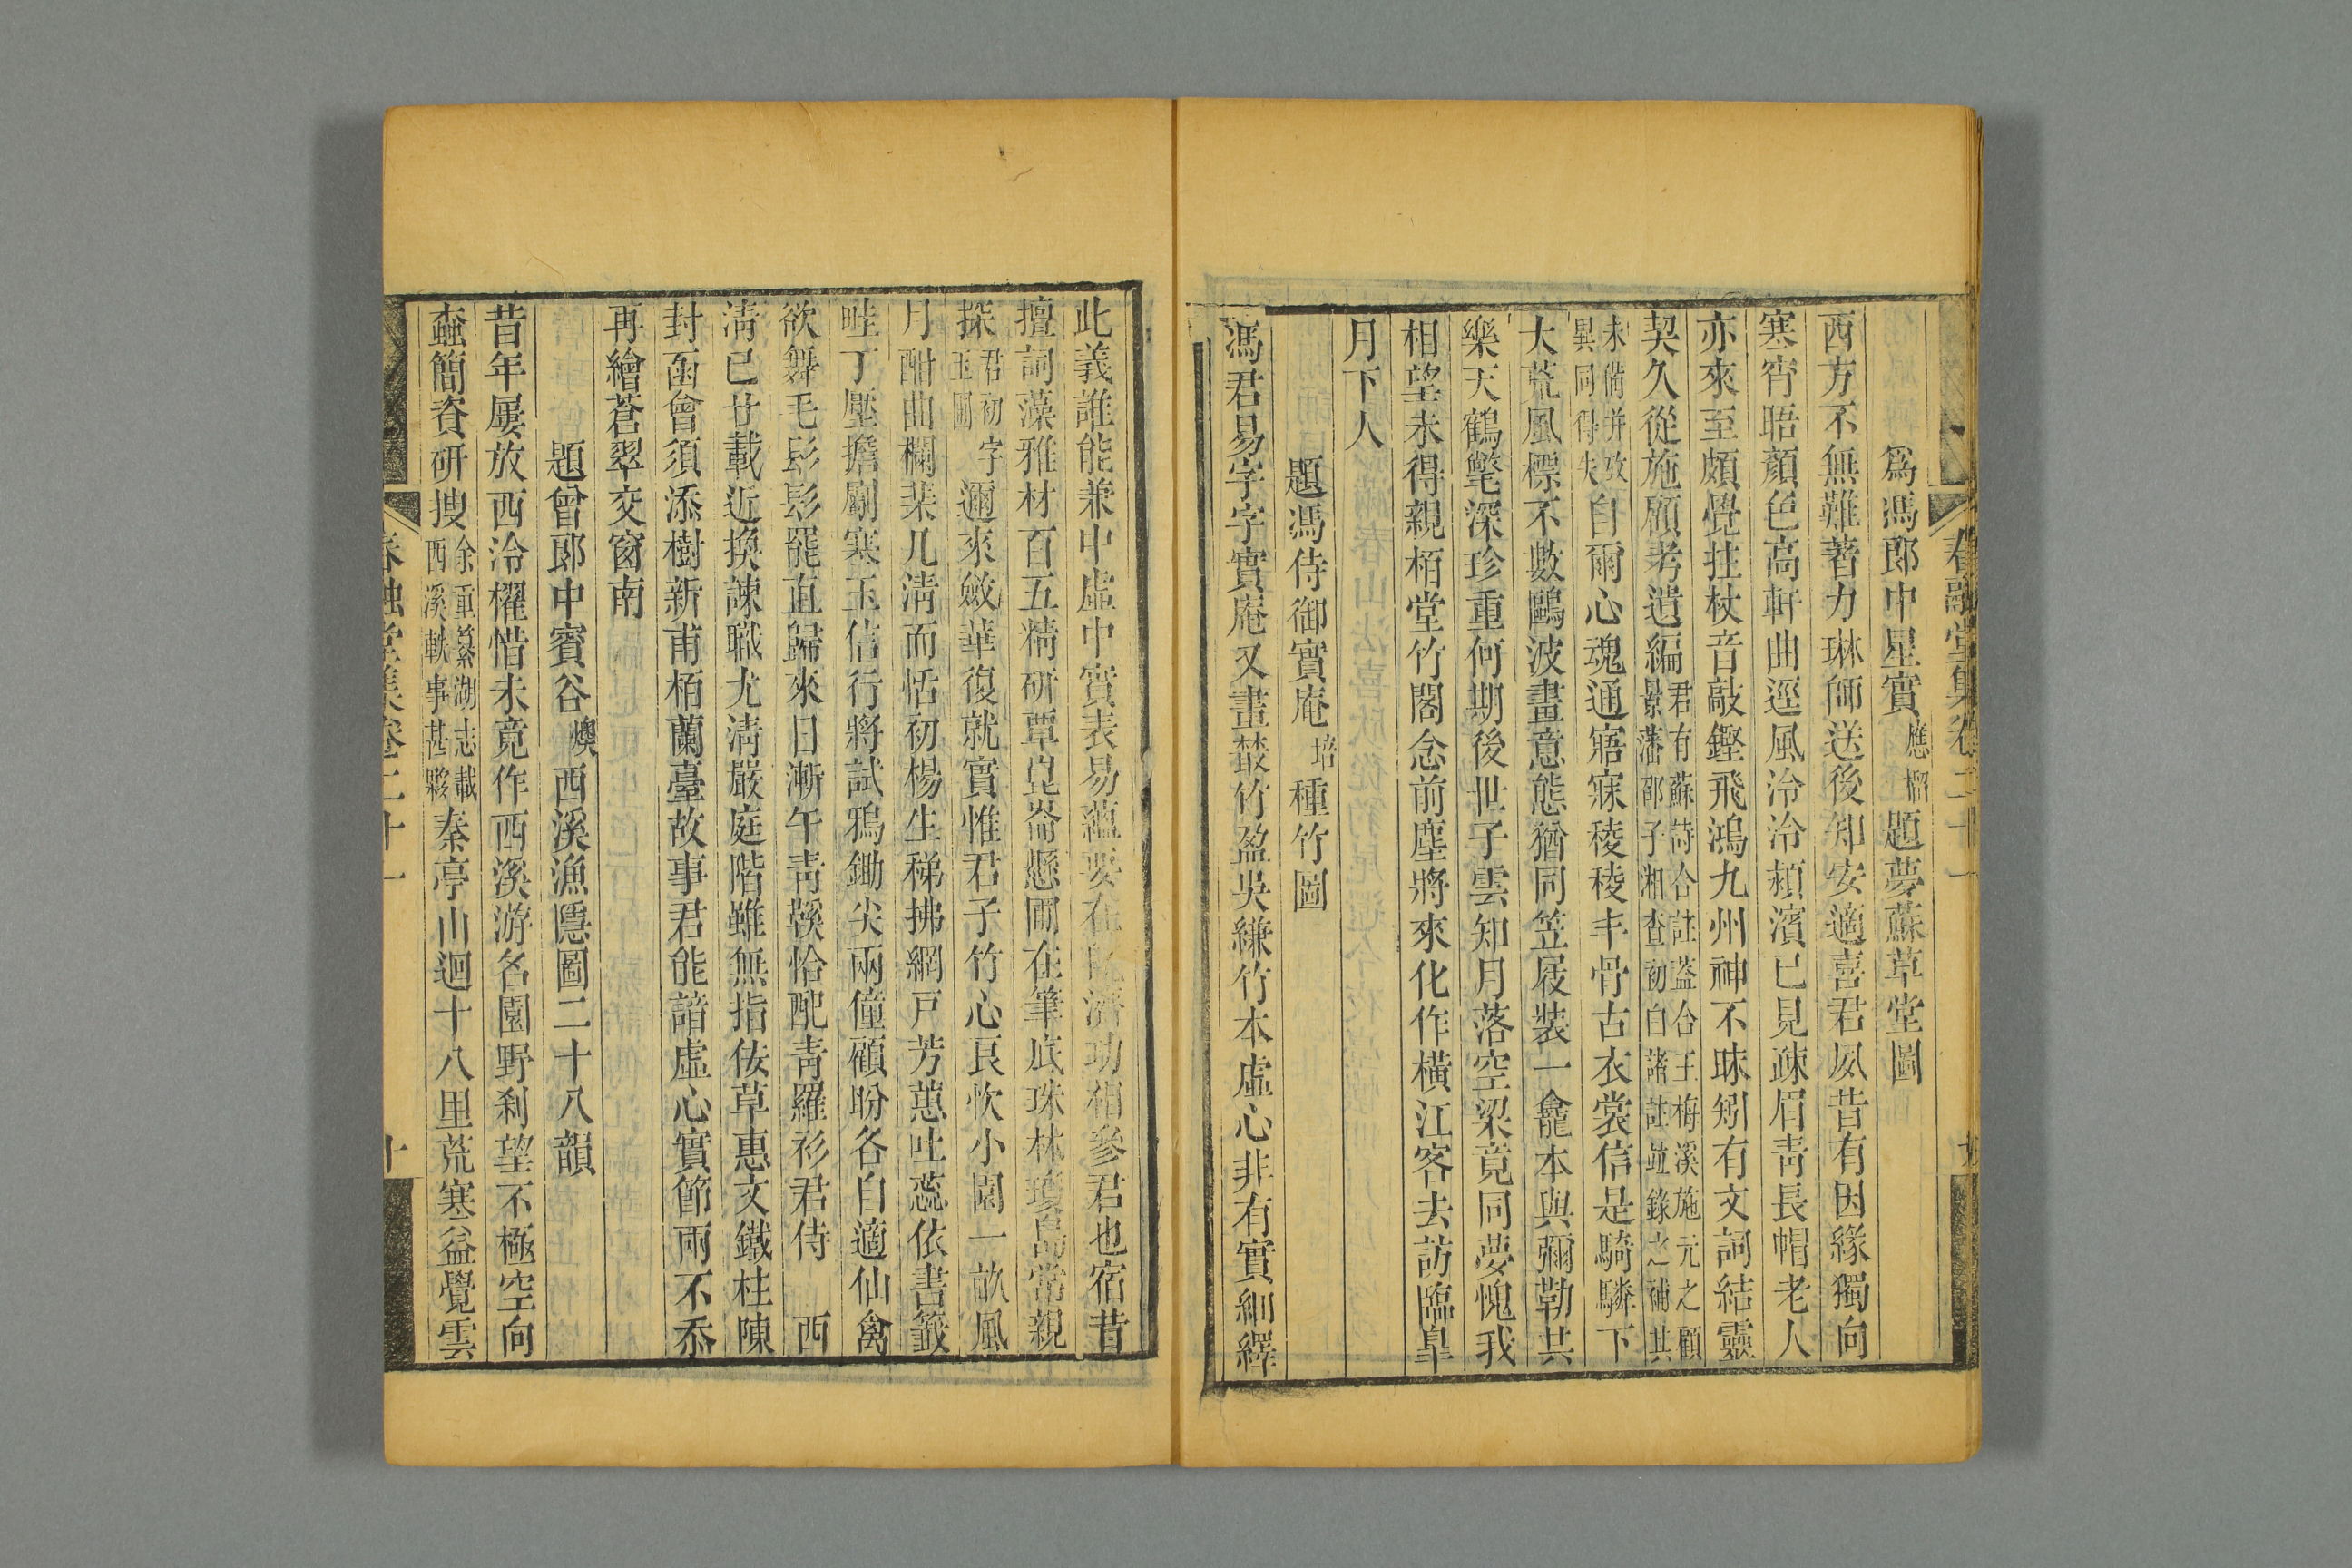 爲馮郎中星實應榴題夢蘇草堂圖
西方不無難著力琳師送後知安適喜君夙昔有因緣獨向
寒宵晤顏色高軒曲逕風泠泠蘋濱已見疎眉靑長帽老人
亦來至頗覺拄杖音敲鏗飛鴻九州神不昧矧有文詞結靈
契久從施顧考遺編君有蘇詩合註葢合王梅溪施元之顧景蕃邵子湘查初白諸註竝錄之補其
未備并攷異同得失自爾心魂通寤寐稜稜丰骨古衣裳信是騎驎下
大荒風標不數鷗波畫意態猶同笠屐裝一龕本與彌勒共
樂天鶴氅深珍重何期後世子雲知月落空梁竟同夢愧我
相望未得親栢堂竹閣念前塵將來化作橫江客去訪臨皐
月下人
題馮侍御實庵培種竹圖
馮君易字字實庵又畫叢竹盈吳縑竹本虛心非有實紬繹
此義誰能兼中虛中實表易蘊要在旣濟功相參君也宿昔
擅詞藻雅材百五精研覃崑崙懸圃在筆底珠林瓊島常親
探君初字玉圃邇來斂華復就實惟君子竹心良忺小園一畝風
月酣曲欄棐几淸而恬初楊生稊拂網戸芳蕙吐蕊依書籤
畦丁壓擔劚寒玉信行將試鴉鋤尖兩僮顧盼各自適仙禽
欲舞毛髟髟罷直歸來日漸午靑鞵恰配靑羅衫君侍西
淸已廿載近換諫職尤淸嚴庭階雖無指佞草惠文鐵柱陳
封函會須添樹新甫栢蘭臺故事君能諳虛心實節兩不忝
再繪蒼翠交窗南
題曾郎中賓谷燠西溪漁隱圖二十八韻
昔年屢放西泠櫂惜未竟作西溪游名園野刹望不極空向
蠧簡資硏搜余重纂湖志載西溪軼事甚夥秦亭山迴十八里荒寒益覺雲
春融堂集卷二十一
十